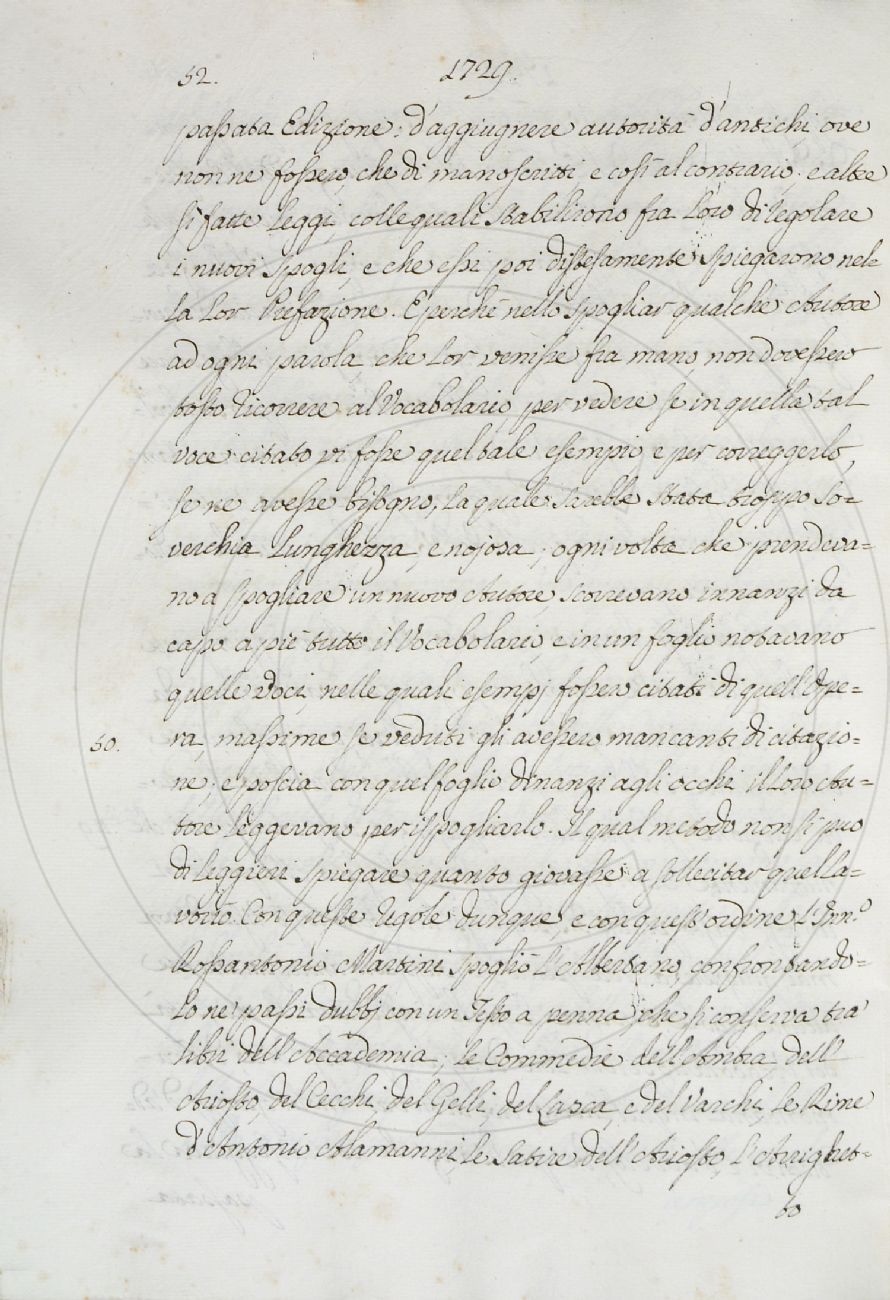 52. 1729.
passata Edizione: d'aggiugnere autorità d'antichi, ove
non ne fossero, che di manoscritti e così al contrario; e altre
sì fatte Leggi, colle quali stabilirono fra Loro di regolare
i nuovi spogli, e che essi poi distesamente spiegarono nel=
la Lor Prefazione. E perchè nello spogliar qualche Autore
ad ogni parola, che Lor venisse fra mano, non dovessero
tosto ricorrere al Vocabolario per vedere se in quella tal
voce citato vi fosse quel tale esempio e per correggerlo,
se ne avesse bisogno, La quale sarebbe stata troppo so=
verchia Lunghezza, e nojosa; ogni volta che prendeva=
no a spogliare un nuovo Autore scorrevano innanzi da
capo a piè tutto il Vocabolario, e in un foglio notavano
quelle voci, nelle quali esempj fossero citati di quell'Ope=
60. ra, massime se veduti gli avessero mancanti di citazio=
ne; e poscia con quel foglio dinanzi agli occhi il Loro Au=
tore Leggevano per ispogliarlo. Il qual metodo non si può
di Leggieri spiegare quanto giovasse a sollecitar quel La=
voro. Con queste regole dunque, e con quest'ordine L'Inn.º
Rossantonio Martini spogliò L'Albertano, confrontando=
Lo ne' passi dubbj con un Testo a penna, che si conserva tra'
libri dell'Accademia; Le Commedie dell'Ambra, dell'
Ariosto, del Cecchi, del Gelli, del Lasca, e del Varchi, Le Rime
d'Antonio Alamanni, Le Satire dell'Ariosto, L'Arrighet=
to